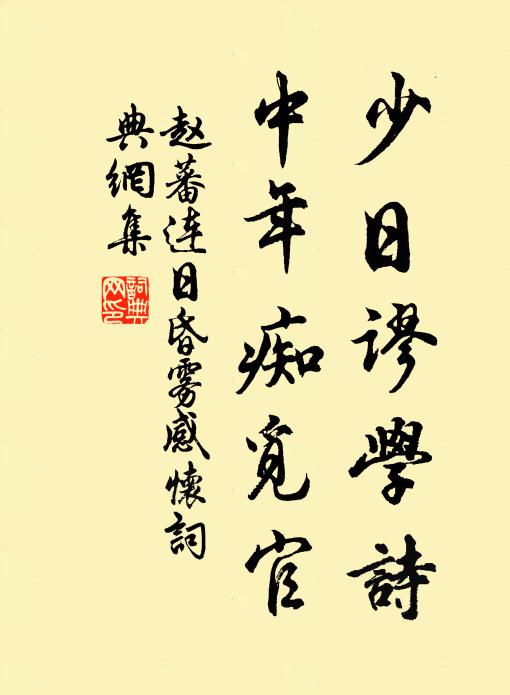 少日谬學詩
中年痴覓官
赵蕃连日昏雾感懷詞
典網集
詞典
网印